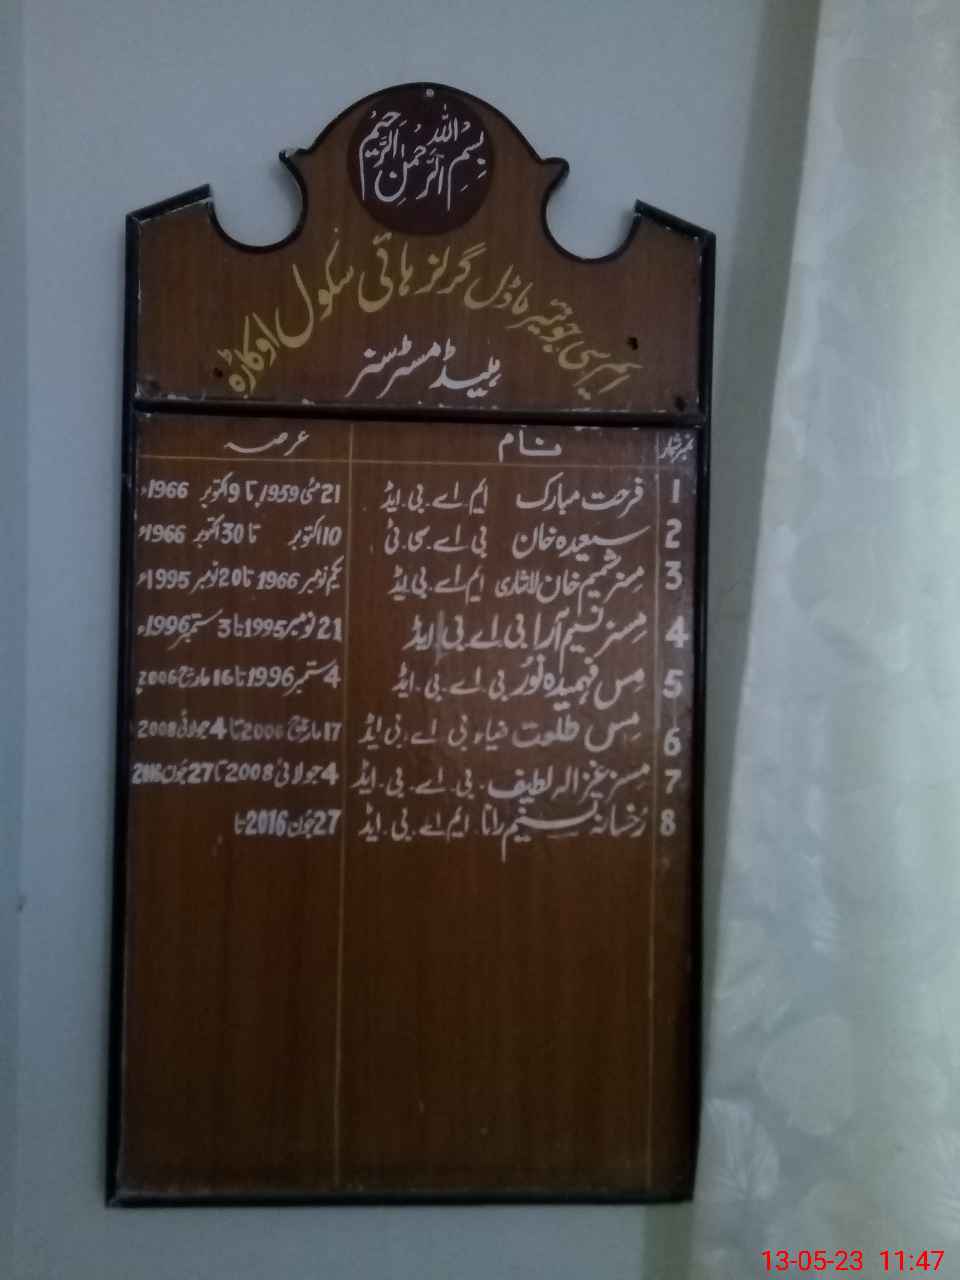 بسم اللہ الرحمٰن الرحیم
ایم سی جونیئر ماڈل گرلز ہائی سکول اوکاڑہ
ہیڈ مسٹرسنر
نمبر شمار نام عرصہ
1 فرحت مبارک ایم۔اے۔بی۔ایڈ 21 مئی 1959ء تا 9 اکتوبر 1966ء
2 سعیدہ خان بی۔اے۔سی۔ٹی 10 اکتوبر تا 30 اکتوبر 1966ء
3 مسز شمیم خان لاشاری ایم۔اے۔بی ایڈ یکم نومبر 1966 تا 20 نومبر 1995ء
4 مسز نسیم آرا بی۔اے۔بی۔ایڈ 21 نومبر 1995 تا 3 ستمبر 1996ء
5 مس فہمیدہ نور بی۔اے۔بی۔ایڈ 4 ستمبر 1996 تا 16 مارچ 2006ء
6 مس طلعت ضیاء بی۔اے۔بی ایڈ 17 مارچ 2006 تا 4 جولائی 2008
7 مسز غزالہ لطیف۔بی۔اے۔بی۔ایڈ 4 جولائی 2008 تا 27 جون 2016
8 رُخسانہ تسنیم رانا۔ایم اے۔بی۔ایڈ 27 جون 2016 تا
13-05-23 11:47